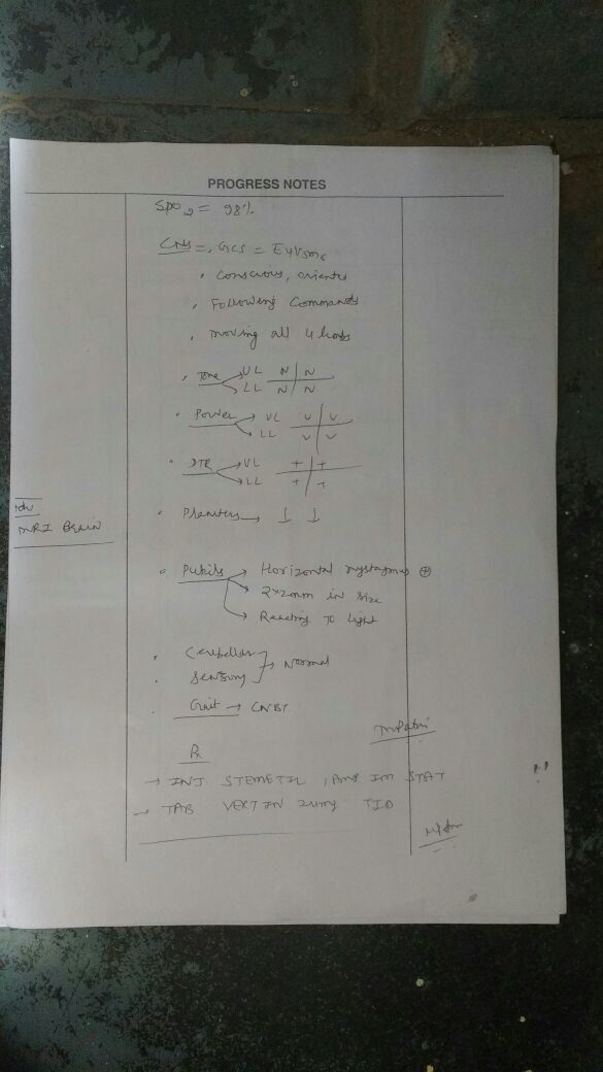 PROGRESS NOTES
SPO2 = 98%
CNS =, GCS = E4V5M6
• Conscious, oriented
• Following Commands
• moving all 4 limbs
• Tone → UL N | N
→ LL N | N
• Power → UL V | V
→ LL V | V
• DTR → UL + | +
→ LL + | +
Adv
MRI Brain
• Planters → ↓ ↓
• Pupils → Horizontal nystagmus ⊕
→ 2x2mm in size
→ Reacting To light
• Cerebellar
• Sensory } → Normal
• Gait → CNBT
Rx
→ INJ STEMETIL 1 Amp IM STAT
→ TAB VERTIN 24mg TID